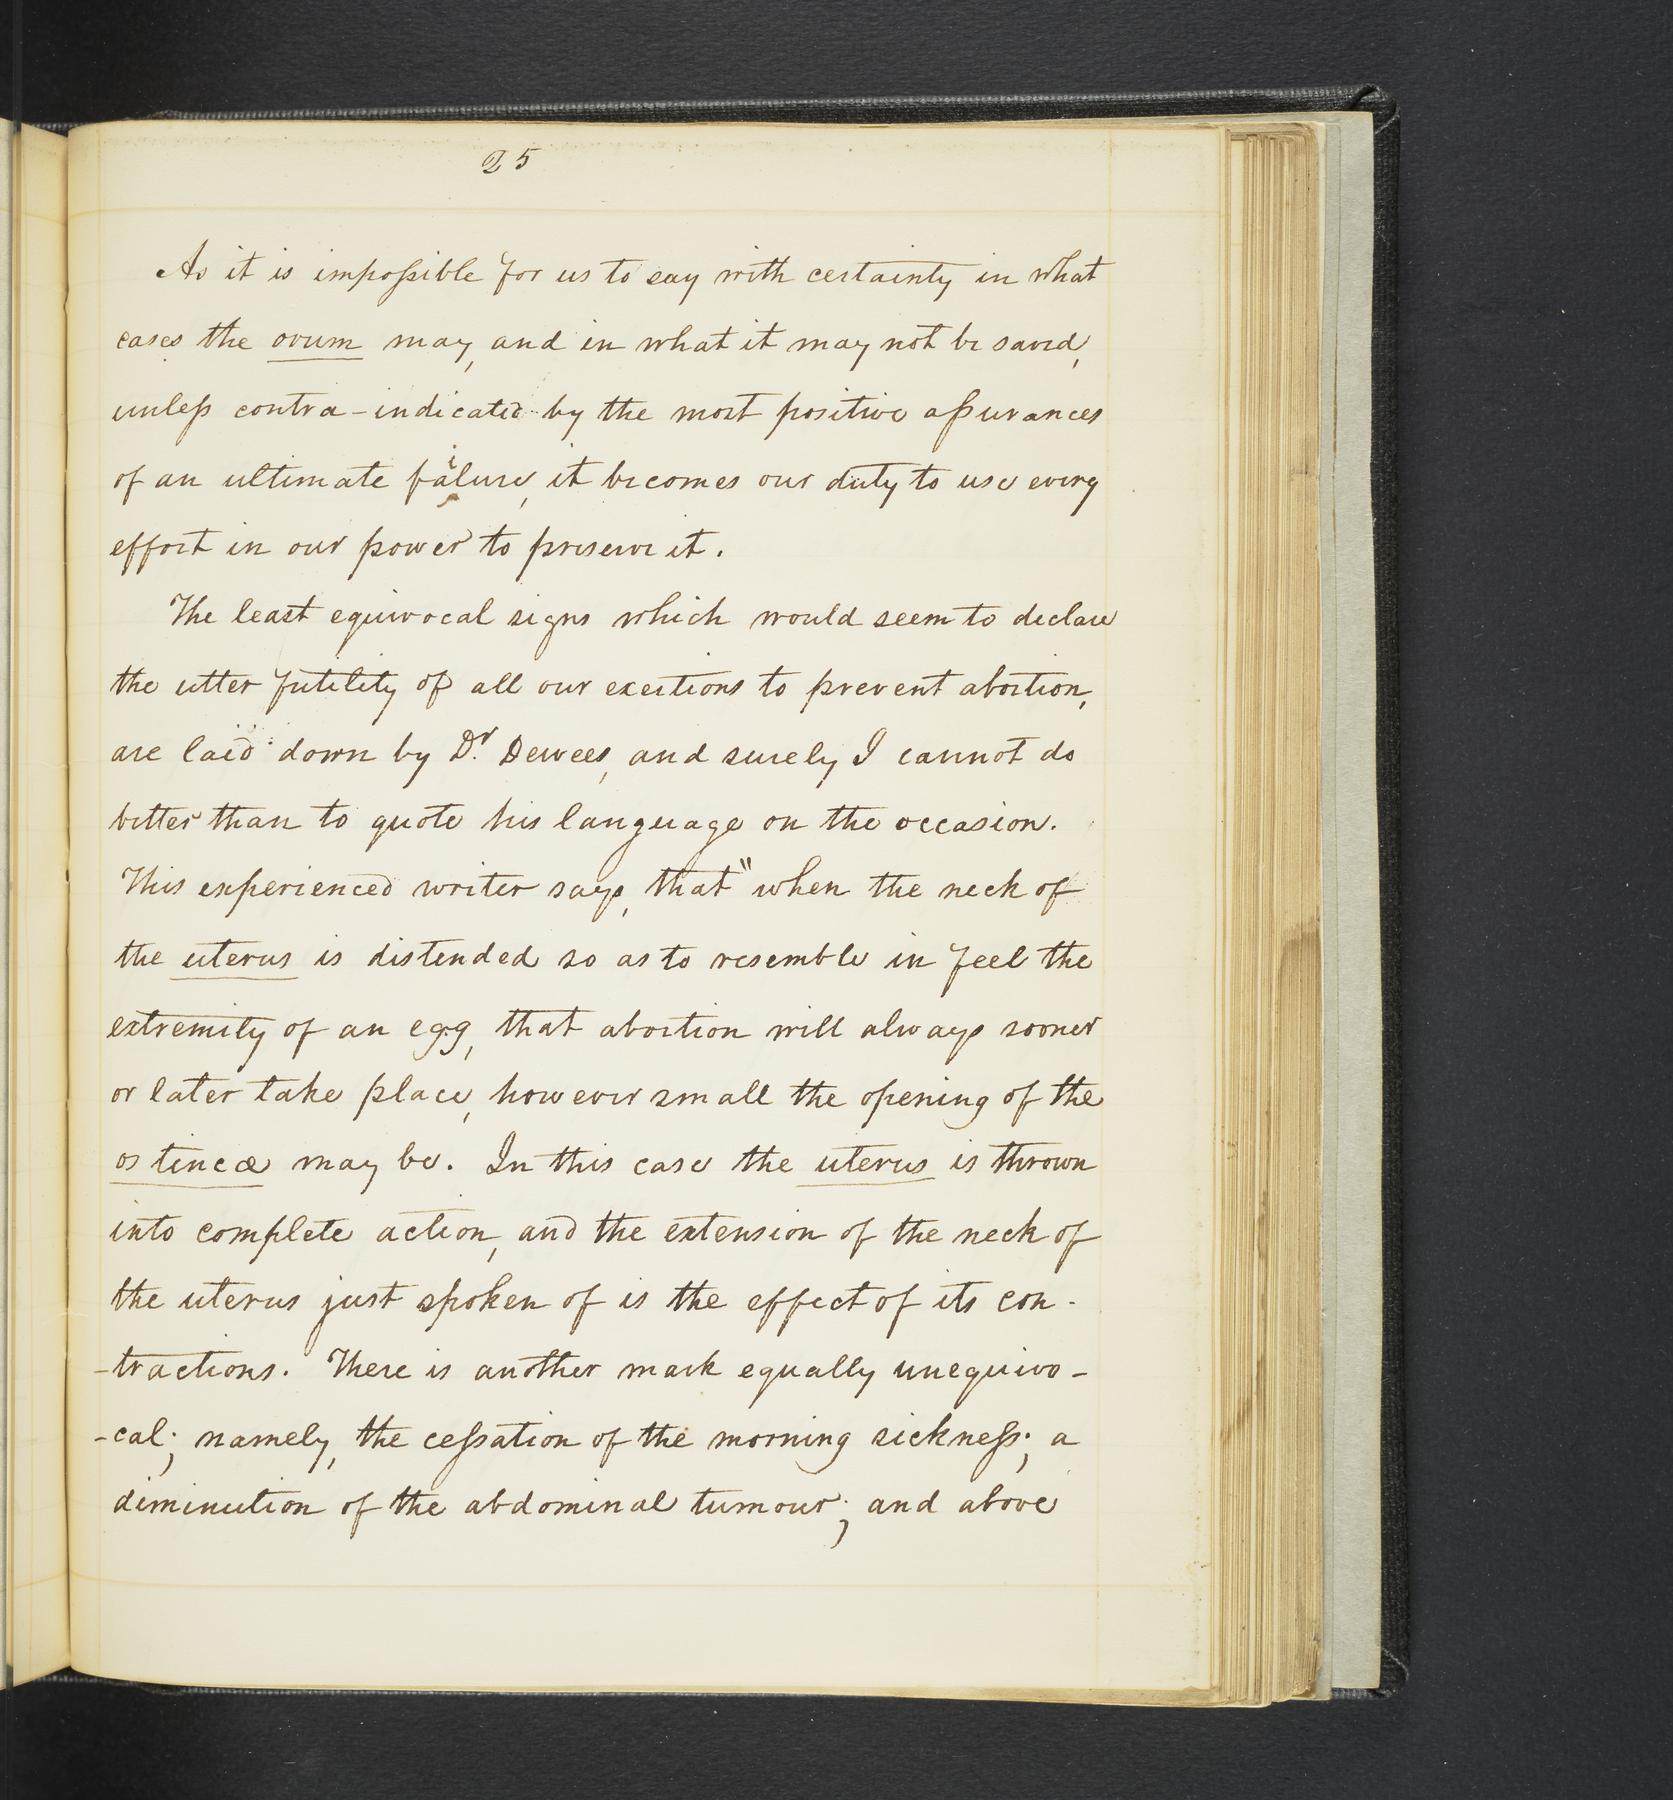 25
As it is impossible for us to say with certainty in what
cases the ovum may, and in what it may not be saved,
unless contra-indicated by the most positive assurances
of an ultimate failure, it becomes our duty to use every
effort in our power to preserve it.
The least equivocal signs which would seem to declare
the utter futility of all our exertions to prevent abortion,
are laid down by Dr. Dewees, and surely I cannot do
better than to quote his language on the occasion.
This experienced writer says, that "when the neck of
the uterus is distended so as to resemble in feel the
extremity of an egg, that abortion will always sooner
or later take place, however small the opening of the
os tincæ may be. In this case the uterus is thrown
into complete action, and the extension of the neck of
the uterus just spoken of is the effect of its con-
-tractions. There is another mark equally unequivo-
-cal; namely, the cessation of the morning sickness; a
diminution of the abdominal tumour; and above